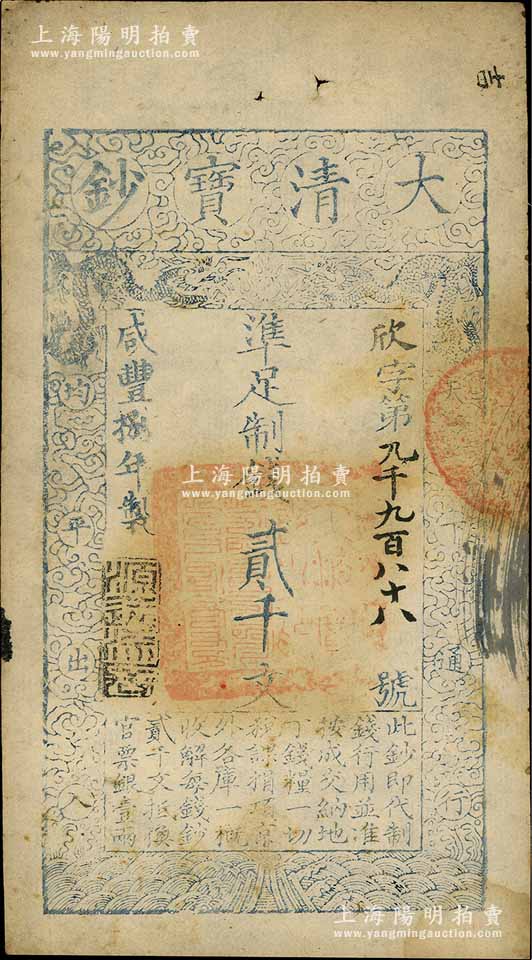 上海陽明拍賣
www.yangmingauction.com
大清寶鈔
天下通行
均平出入
欣字第九千九百八十八號
準足制錢貳千文
咸豐捌年製
此鈔即代制
錢行用並准
按成交納地
丁錢糧一切
稅課捐項京
外各庫一概
收解每錢鈔
貳千文抵換
官票銀壹兩
上海陽明拍賣
www.yangmingauction.com
上海陽明拍賣
www.yangmingauction.com